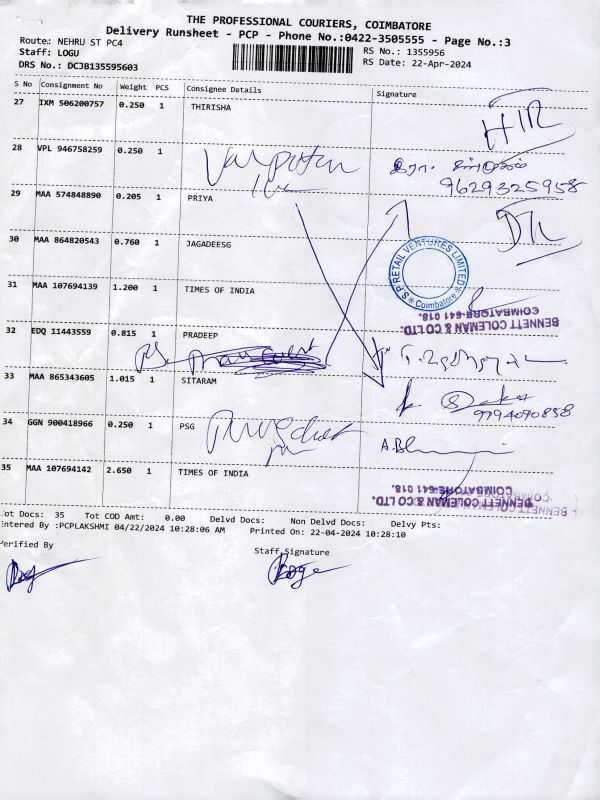 THE PROFESSIONAL COURIERS, COIMBATORE
Delivery Runsheet - PCP - Phone No.:0422-3505555 - Page No.:3
Route: NEHRU ST PC4
RS No.: 1355956
Staff: LOGU
RS Date: 22-Apr-2024
DRS No.: DCJB135595603
S No Consignment No Weight PCS Consignee Details Signature
27 IXM 506200757 0.250 1 THIRISHA
28 VPL 946758259 0.250 1
9629325958
29 MAA 574848890 0.205 1 PRIYA
30 MAA 864820543 0.760 1 JAGADEESG
S.P. RETAIL VENTURES LIMITED * Coimbatore *
31 MAA 107694139 1.200 1 TIMES OF INDIA
BENNETT COLEMAN & CO LTD.
COIMBATORE-641 018.
32 EDQ 11443559 0.815 1 PRADEEP
33 MAA 865343605 1.015 1 SITARAM
9794090858
34 GGN 900418966 0.250 1 PSG
35 MAA 107694142 2.650 1 TIMES OF INDIA
BENNETT COLEMAN & CO LTD.
COIMBATORE-641 018.
ot Docs: 35 Tot COD Amt: 0.00 Delvd Docs: Non Delvd Docs: Delvy Pts:
ntered By :PCPLAKSHMI 04/22/2024 10:28:06 AM Printed On: 22-04-2024 10:28:10
erified By
Staff Signature